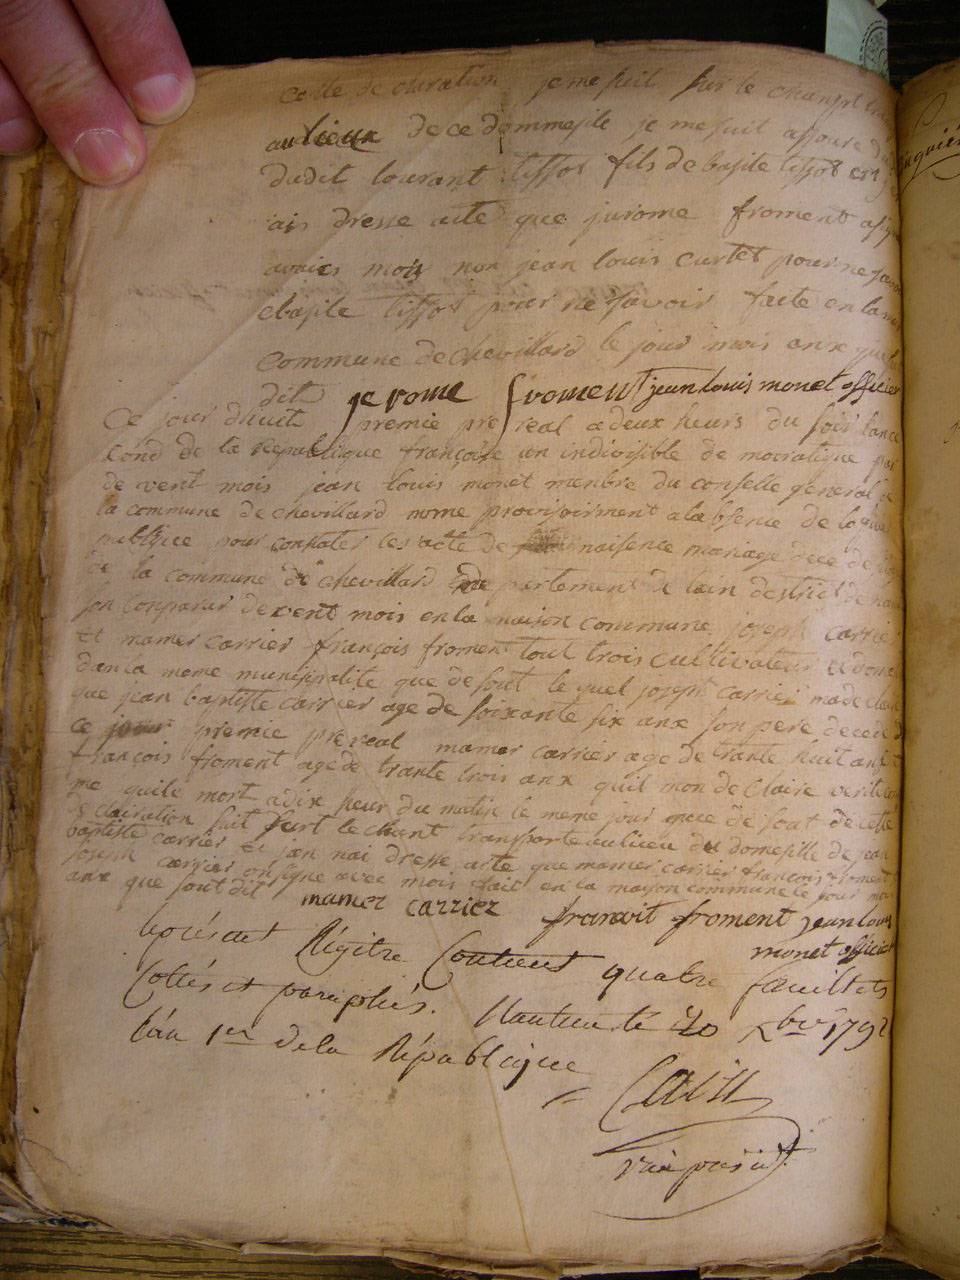 cette de claration je me suit sur le chanpt
au lieux de ce dommesile je me suit assure du
dudit lourant tissot fils de bapite tissot est
ais dresse acte que jurome froment
avaics mois non jean louis curtet pour ne savoir
ebapite tissot pour ne savoir faite en la
commune de chevillard le jour mois anx quel
dit jerome froment jean louis monet officier
Ce jour dhuit premie pre real a deux heurs du soir lance
cond de la republique françoise un indivisible de mocratique par
de vent mois jean louis monet menbre du conselle general de
la commune de chevillard nome provisoirment a la bsence de lo
publice pour constater les acte de naisence mariage dece
de la commune de chevillard de partement de lain destrict de
son conparus devent mois en la maison commune joseph carrier
et mamer carrier françois froment tout trois cultivateur
dan la meme munisipalite que de sout le quel joseph carrier ma de claire
que jean baptiste carrier age de soixante six anx son pere decede
ce jour premie prereal mamer carrier age de trante huit anx
françois froment age de trante trois anx quil mon de claire
me quile mort a dix heur du matin le meme jour que de sout de cette
de clairation suit surt le chant transporte au lieu du domesille de jean
baptiste carrier et jan nai dresse acte que mamer carrier françois froment
joseph carrier on signe avec mois fait en la mayson commune le jour mois
anx que sout dit mamer carrier francoit froment jean louis
monet officier
le présent Régitre Contient quatre feuillets
Cottés et paraphés. Nantua le 20 xbre 1792
l'an 1er de la République